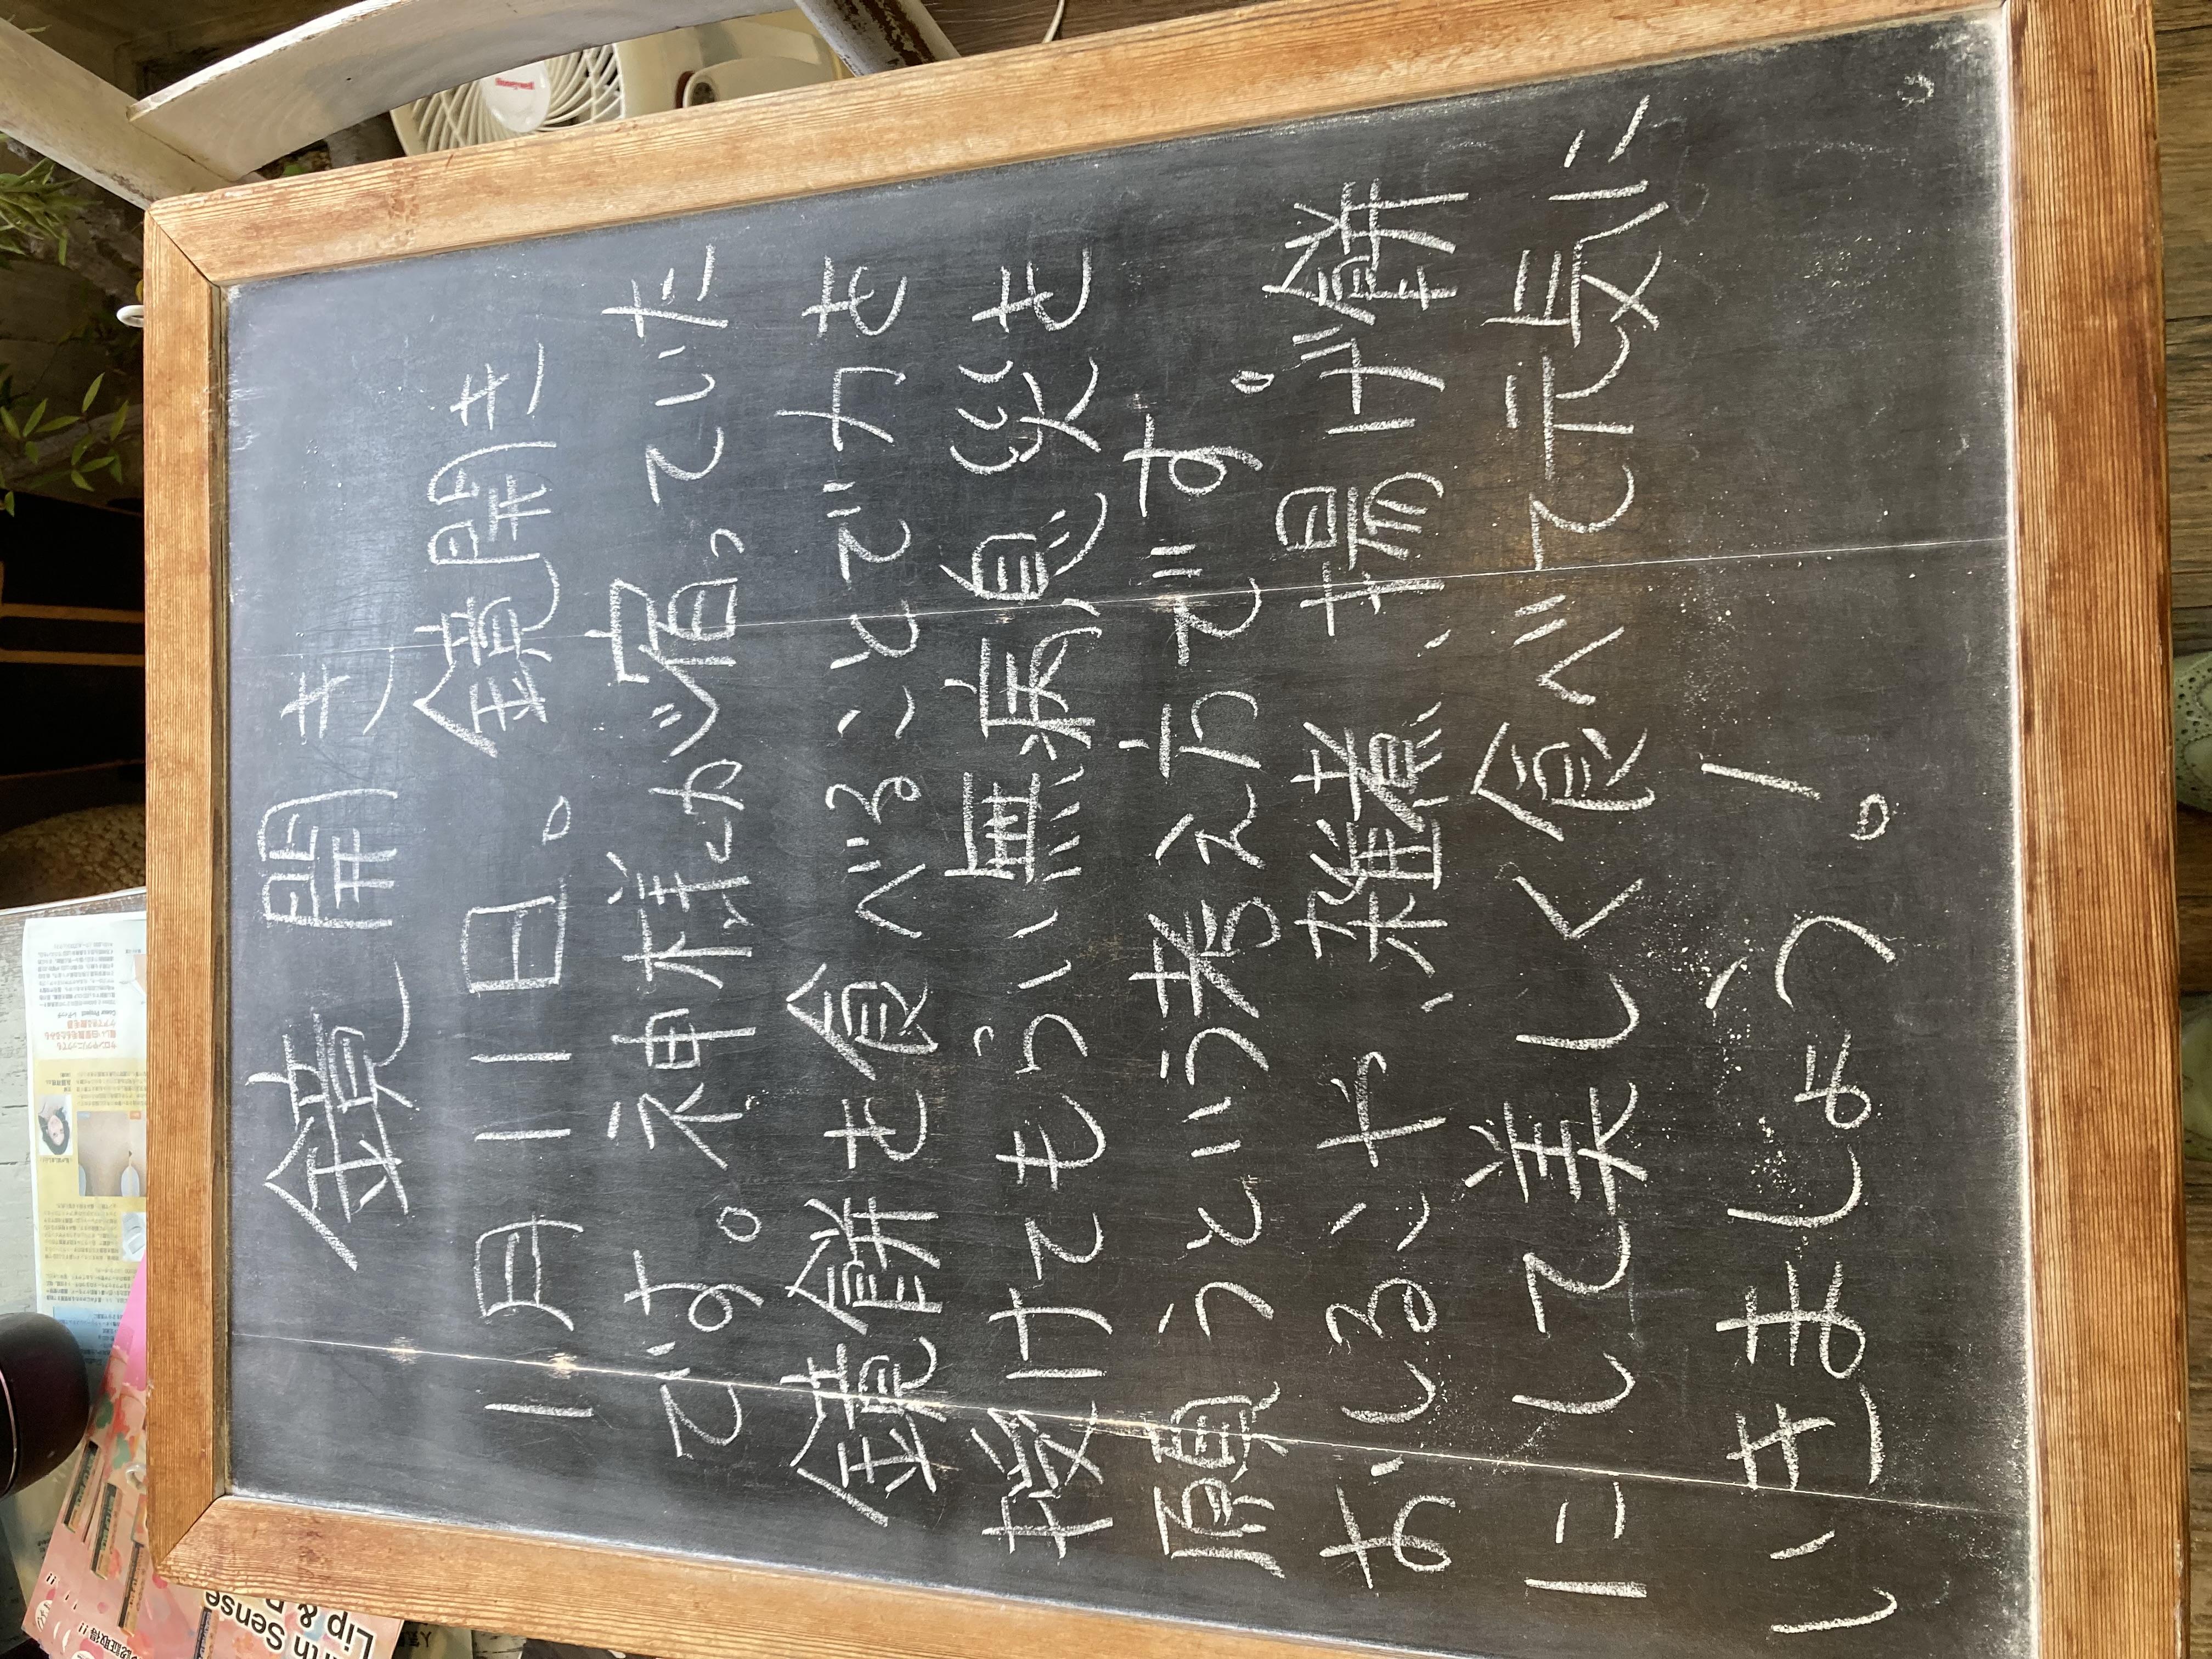 鏡開き
1月11日。鏡開き
です。神様が宿っていた
鏡餅を食べることで力を
授けてもらい無病息災を
願うという考え方です。
おしるこや、雑煮、揚げ餅
にして美しく食べて元気に
いきましょう。